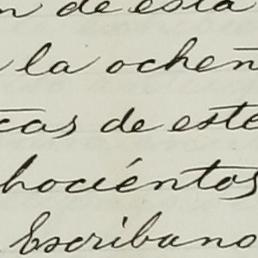 n de esta
la ochen
cas de este
hociéntos
Escribano